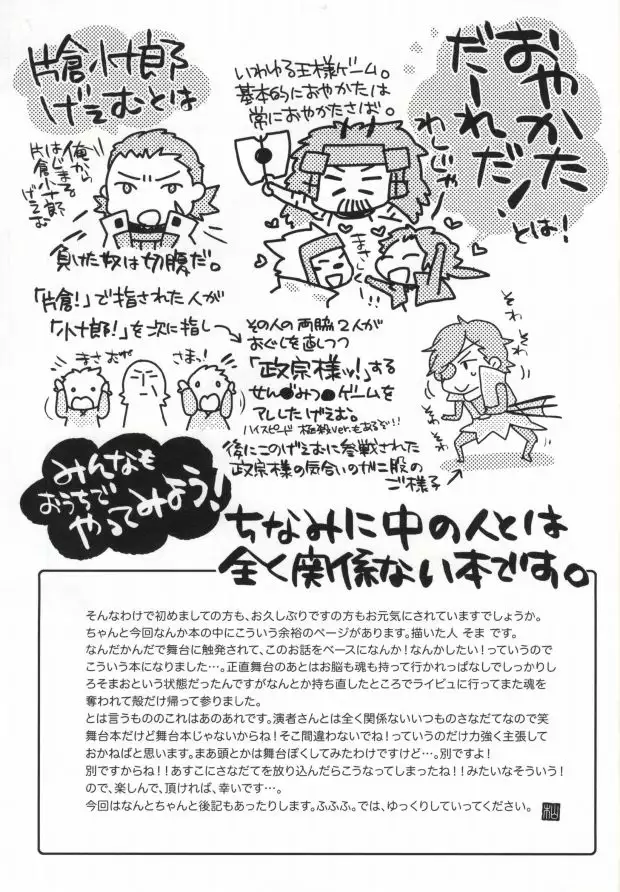 おやかた
だーれだ!
とは!
いわゆる王様ゲーム。
基本的におやかたは
常におやかたさば。
わしじゃー
まさしく!!
片倉小十郎
げえむとは
俺から
はじまる
片倉小十郎
げえむ
負けた奴は切腹だ。
「片倉!」で指された人が
「小十郎!」を次に指し
まさむね
さまっ!
その人の両脇2人が
おぐしを直しつつ
「政宗様ッ!」する
せん●みつ●ゲームを
アレしたげえむ。
ハイスピード 極殺ver.もあるぞ!!
そわ
そわ
そわ
そわ
後にこのげえむに参戦された
政宗様の気合いのガニ股の
ご様子
みんなも
おうちで
やってみよう!
ちなみに中の人とは
全く関係ない本です。
そんなわけで初めましての方も、お久しぶりですの方もお元気にされていますでしょうか。
ちゃんと今回なんか本の中にこういう余裕のページがあります。描いた人 そま です。
なんだかんだで舞台に触発されて、このお話をベースになんか!なんかしたい!っていうので
こういう本になりました…。正直舞台のあとはお脳も魂も持って行かれっぱなしでしっかりし
ろそまおという状態だったんですがなんとか持ち直したところでライビュに行ってまた魂を
奪われて殻だけ帰って参りました。
とは言うもののこれはあのあれです。演者さんとは全く関係ないいつものさなだてなので笑
舞台本だけど舞台本じゃないからね!そこ間違わないでね!っていうのだけ力強く主張して
おかねばと思います。まあ頭とかは舞台ぽくしてみたわけですけど…。別ですよ!
別ですからね!!あすこにさなだてを放り込んだらこうなってしまったね!!みたいなそういう!
ので、楽しんで、頂ければ、幸いです…。
今回はなんとちゃんと後記もあったりします。ふふふ。では、ゆっくりしていってください。